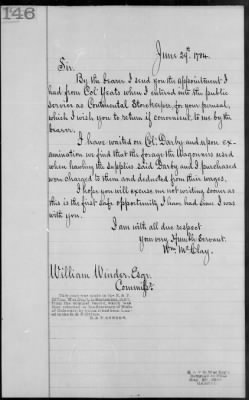 146
June 29th 1784.
Sir.
By the bearer I send you the appointment I
had from Col. Yeats when I entered into the public
service as Continental Storekeeper, for your perusal,
which I wish you to return if convenient to me by the
bearer.
I have waited on Col. Darby and upon ex-
amination we find that the forage the Waggoners used
when hauling the supplies Said Darby and I purchased
was charged to them and deducted from their wages.
I hope you will excuse me not writing sooner as
this is the first safe opportunity I have had since I was
with you.
I am with all due respect
Your very Humble Servant.
Wm. McClay.
William Winder, Esqr.
Commisst.
This copy was made in the R. & P.